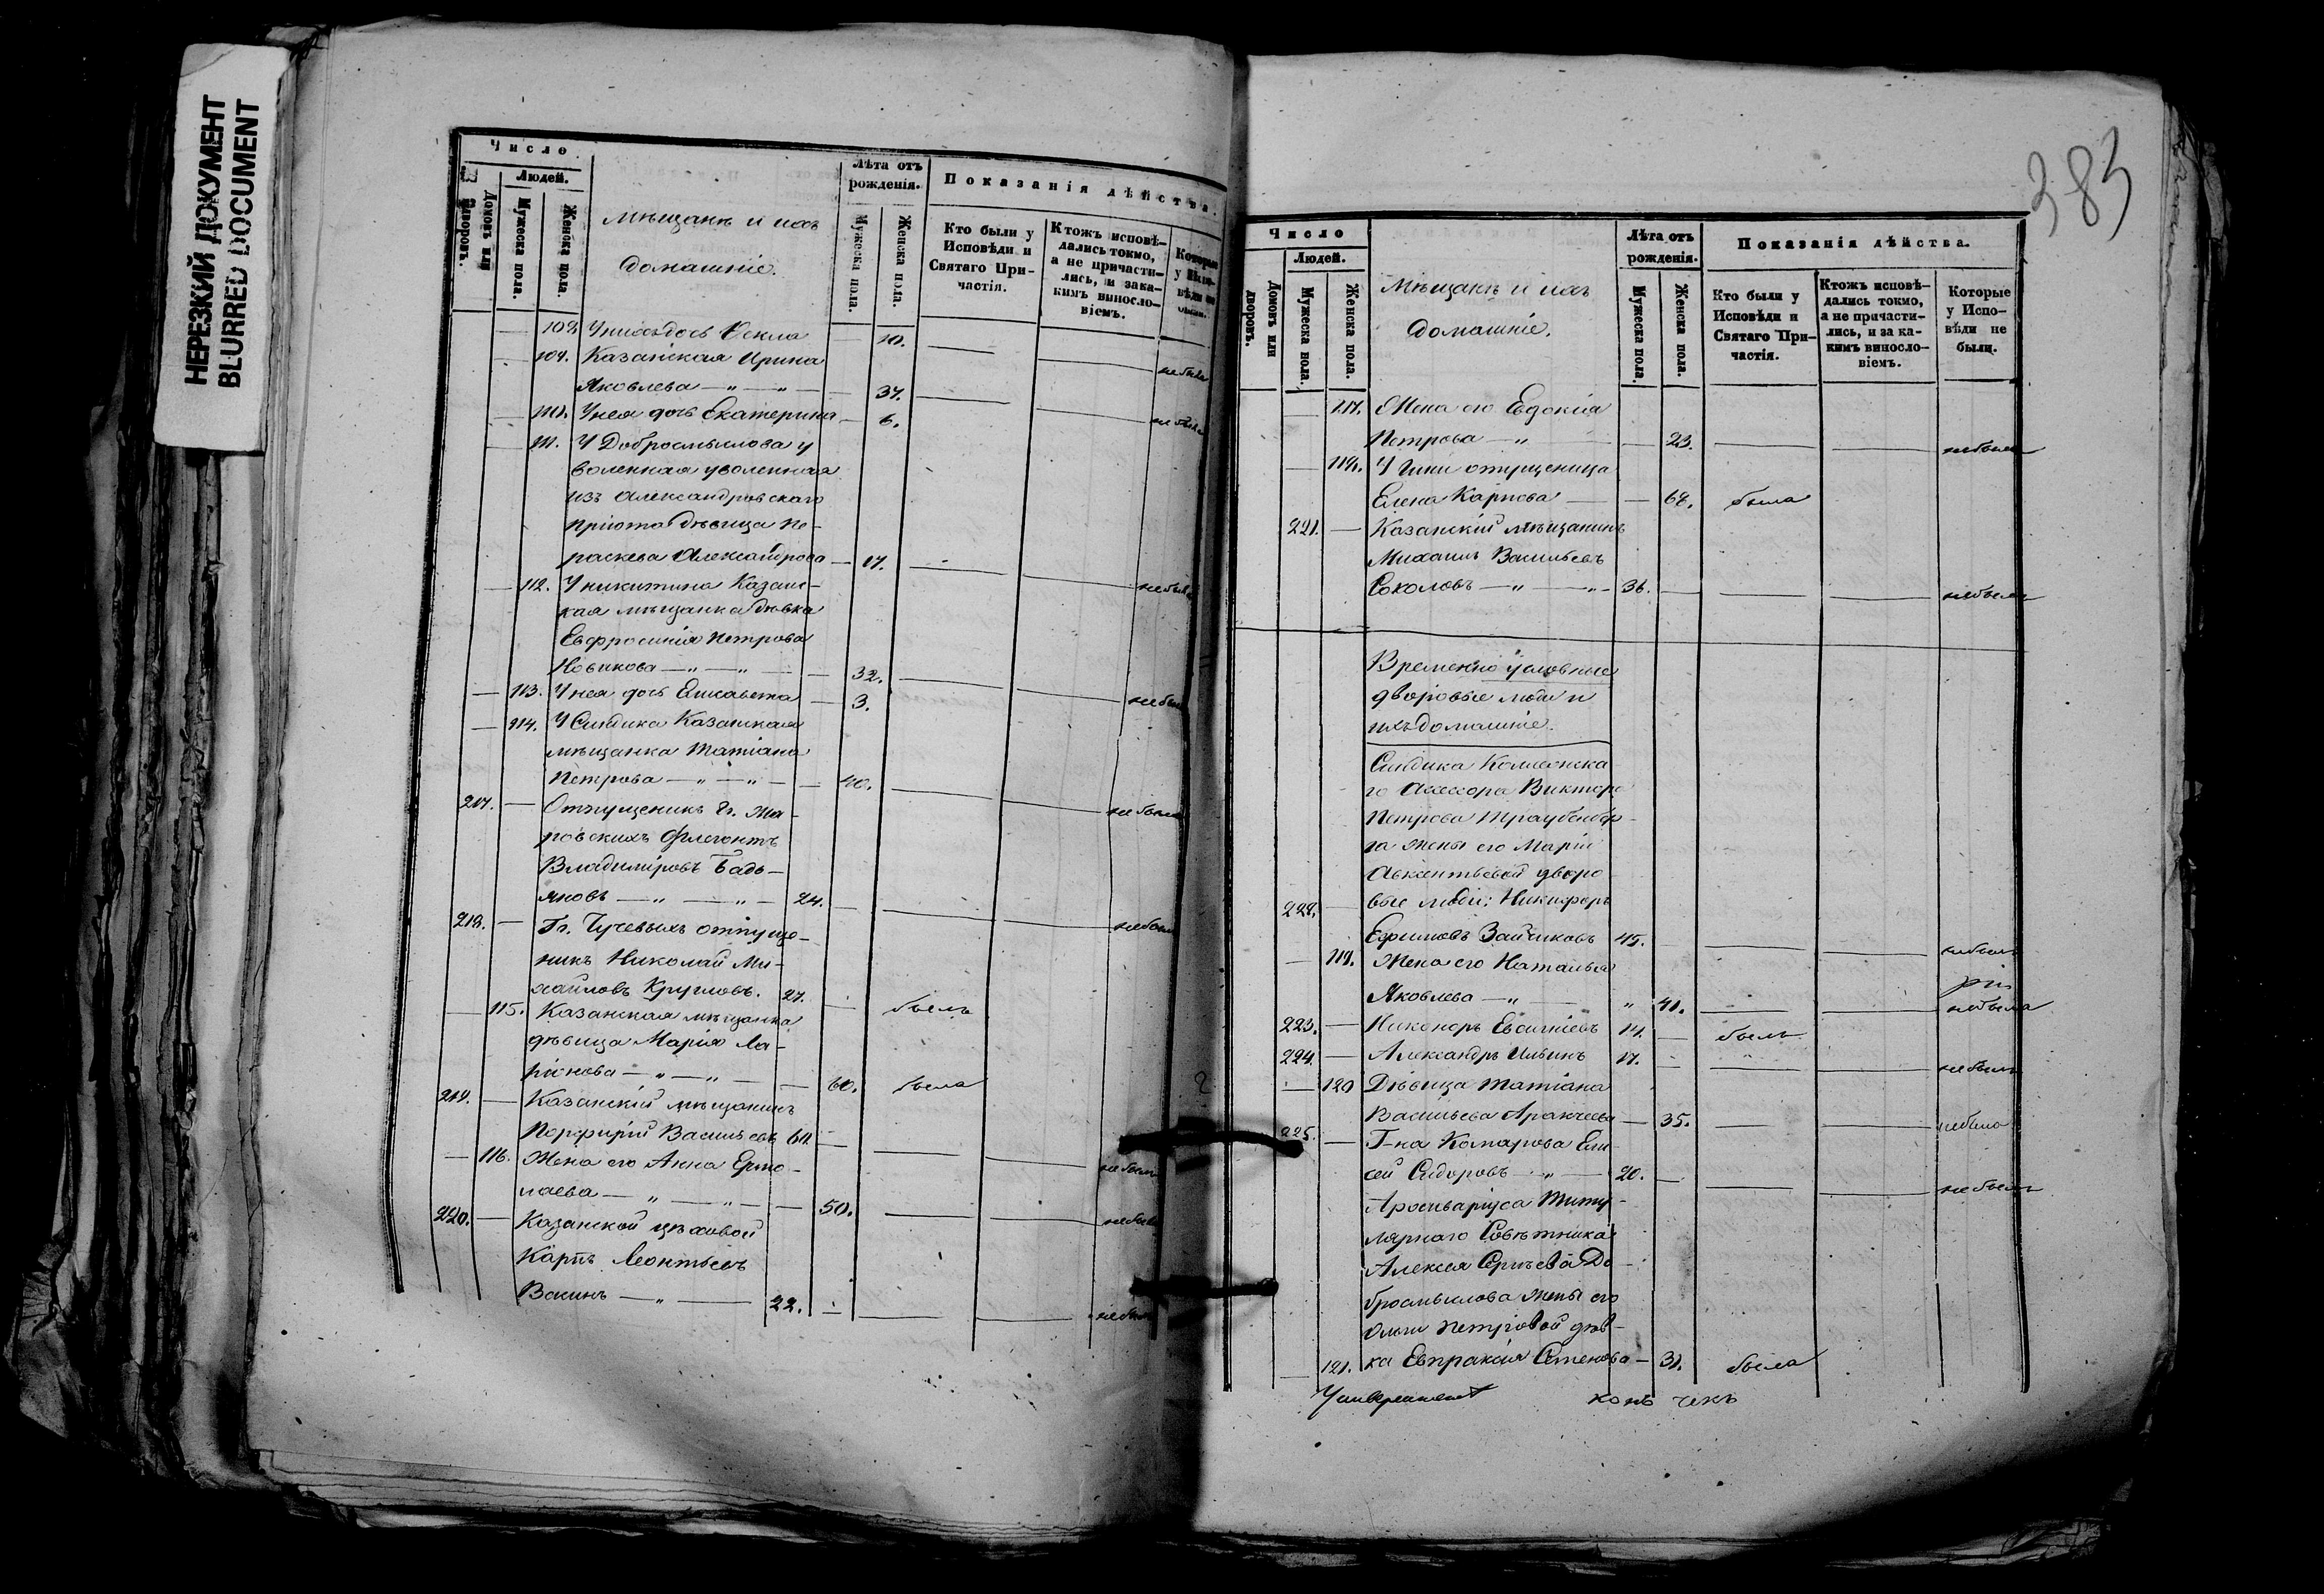 НЕРЕЗКИЙ ДОКУМЕНТ
BLURRED DOCUMENT
Число
Людей.
Домовъ или дворовъ.
Мужеска пола.
Женска пола.
Мѣщанъ и ихъ
домашніе.
Лѣта отъ рожденія.
Мужеска пола.
Женска пола.
Показанія дѣйства.
Кто были у Исповѣди и Святаго Причастія.
Ктожъ исповѣдались токмо, а не причастились, и за какимъ винословіемъ.
Которые у Исповѣди не были.
109. Казанская Ирина
Яковлева — " — " — 37. небыла
110. У нея дочь Екатерина — 6. небыла
111. У Добросмыслова у
воленная уволенная
изъ Александровскаго
пріюта дѣвица Па-
раскева Александрова — 17. небыла
112. У Никитина Казанс-
кая мѣщанка дѣвка
Евфросинія Петрова
Новикова — " — " — 32.
113. У нея дочь Елисавета — 3. небыла
114. У Синдика Казанская
мѣщанка Татіана
Петрова — " — " — 40. небыла
217. Отпущеникъ Гг.
Флегонтъ
Владиміровъ Бадь-
яновъ — " — " — 24. небылъ
218. Гг. отпуще-
никъ Николай Ми-
хайловъ Кругловъ. 27. былъ
115. Казанская мѣщанка
дѣвица Марія Ла-
ріонова — " — " — 60. была
219. Казанскій мѣщанинъ
Порфирій Васильевъ 60. небылъ
116. Жена его Анна Ермо-
лаева — " — " — 50. небыла
220. Казанской цѣховой
Карпъ Леонтьевъ
Вакинъ — " — 22. небылъ
383
Число
Людей.
Домовъ или дворовъ.
Мужеска пола.
Женска пола.
Мѣщанъ и ихъ
домашніе.
Лѣта отъ рожденія.
Мужеска пола.
Женска пола.
Показанія дѣйства.
Кто были у Исповѣди и Святаго Причастія.
Ктожъ исповѣдались токмо, а не причастились, и за какимъ винословіемъ.
Которые у Исповѣди не были.
117. Жена его Евдокія
Петрова — " — 23. небыла
118. отпущеница
Елена Карпова — 68. была
221. Казанскій мѣщанинъ
Михаилъ Васильевъ
Соколовъ — " — " — 36. небылъ
Временно условные
дворовые люди и
ихъ домашніе.
Синдика Коллежска
го Асессора Виктора
Петрова Траубенбер-
га жены его Маріи
Авксентьевой дворо
222. вые люди: Никифоръ
Ефимовъ Зайчиковъ 45. небылъ
119. Жена его Наталья
Яковлева — " — " 41. небыла
223. Никаноръ Евсигніевъ 14. былъ
224. Александръ Ильинъ 17. небылъ
120 Дѣвица Татіана
Васильева Аракчеева — 35. небыла
225. Г-на Комарова Ели-
сей Сидоровъ — " — 20. небылъ
Архиваріуса Титу-
лярнаго Совѣтника
Алексея Сергѣева До-
бросмыслова жены его
Ольги Петровой дѣв-
121. ка Евпраксія Семенова — 31. была